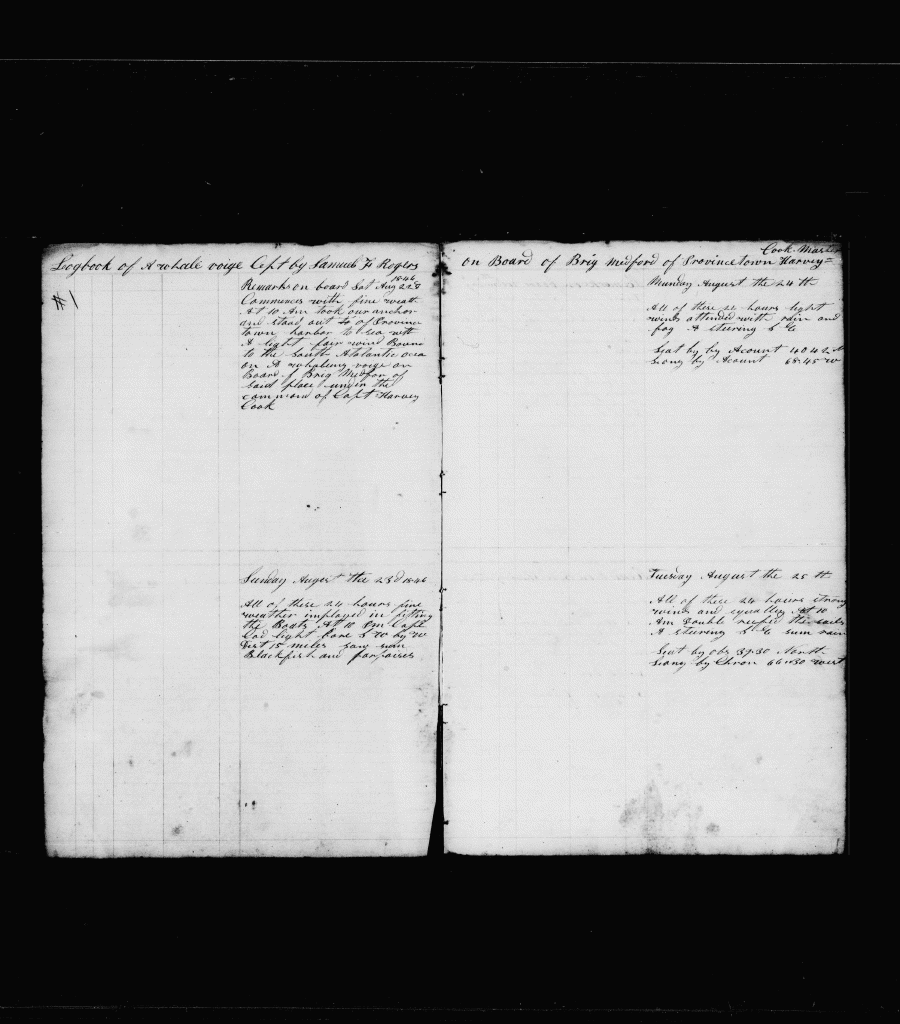 Logbook of A whale voige Cept by Samuel F Rogers
#1
1846
Remarks on board Sat Aug 22d
Commences with fine weath
At 10 Am took our anchor
and stood out to of Province
town harbor to sea with
A light fair wind Bound
to the South Atalantic ocea
on A whaleing voige on
Board of Brig Medfor of
said place under the
command of Capt Harvey
Cook
Sunday Augest the 23d 1846
All of these 24 hours fine
weather imployed in fitting
the Boats At 10 Pm Cape
Cod light bore S W by W
Dist 15 miles saw sum
Blackfish and porpoises
Cook Master
on Board of Brig Medford of Provincetown Harvey=
Munday August the 24 th
All of these 24 hours light
winds attended with rain and
fog A steering S E
Lat by by Acount 40 42 N
Long by Acount 68=45 W
Tuesday August the 25 th
All of these 24 hours strong
winds and squalley At 10
Am Double reefed the sails
A steering S E sum rain
Lat by obs 39=30 North
Long by Chron 66=30 west